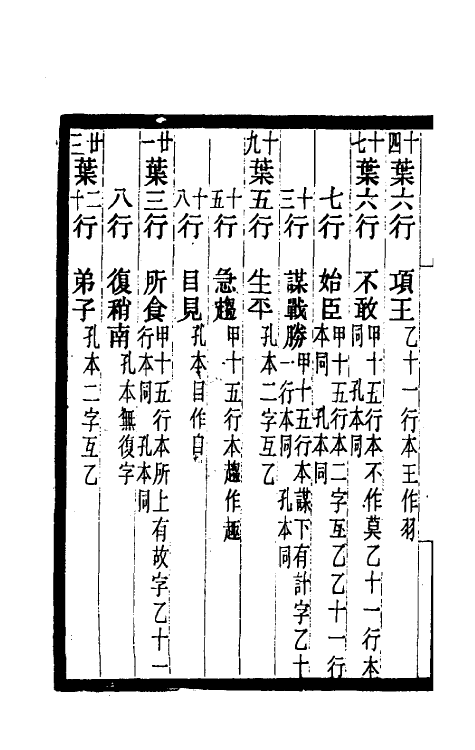 十四葉六行　項王　乙十一行本王作羽
十七葉六行　不敢　甲十五行本不作莫乙十一行本同　孔本同
七行　始臣　甲十五行本二字互乙乙十一行本同　孔本同
十三行　謀戰勝　甲十五行本謀下有計字乙十一行本同　孔本同
十九葉五行　生平　孔本二字互乙
十五行　急趨　甲十五行本趨作趣
十八行　目見　孔本目作自
廿一葉三行　所食　甲十五行本所上有故字乙十一行本同　孔本同
八行　復稍南　孔本無復字
廿三葉十二行　弟子　孔本二字互乙